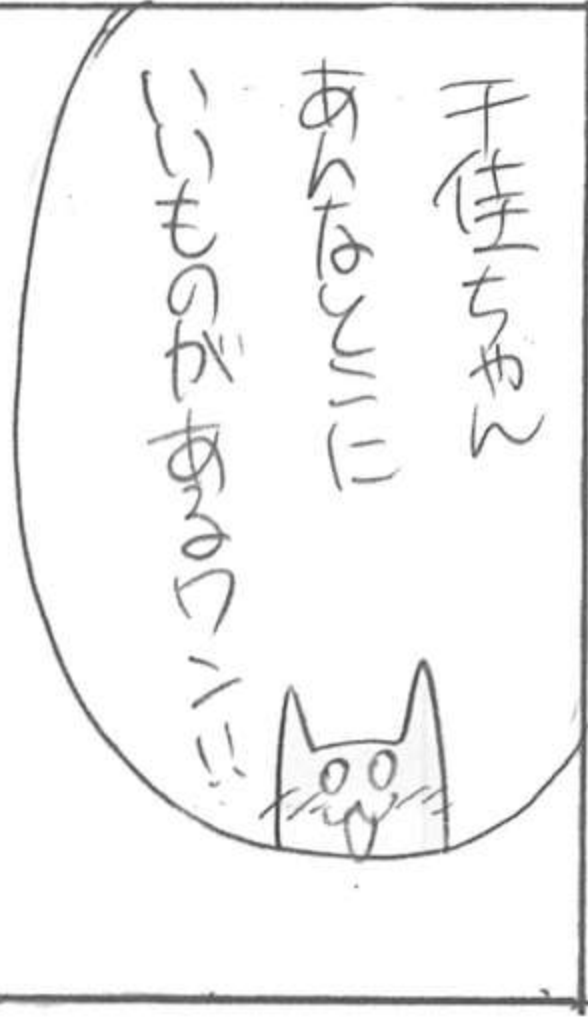 千佳ちゃん
あんなとこに
いいものがあるワン!!